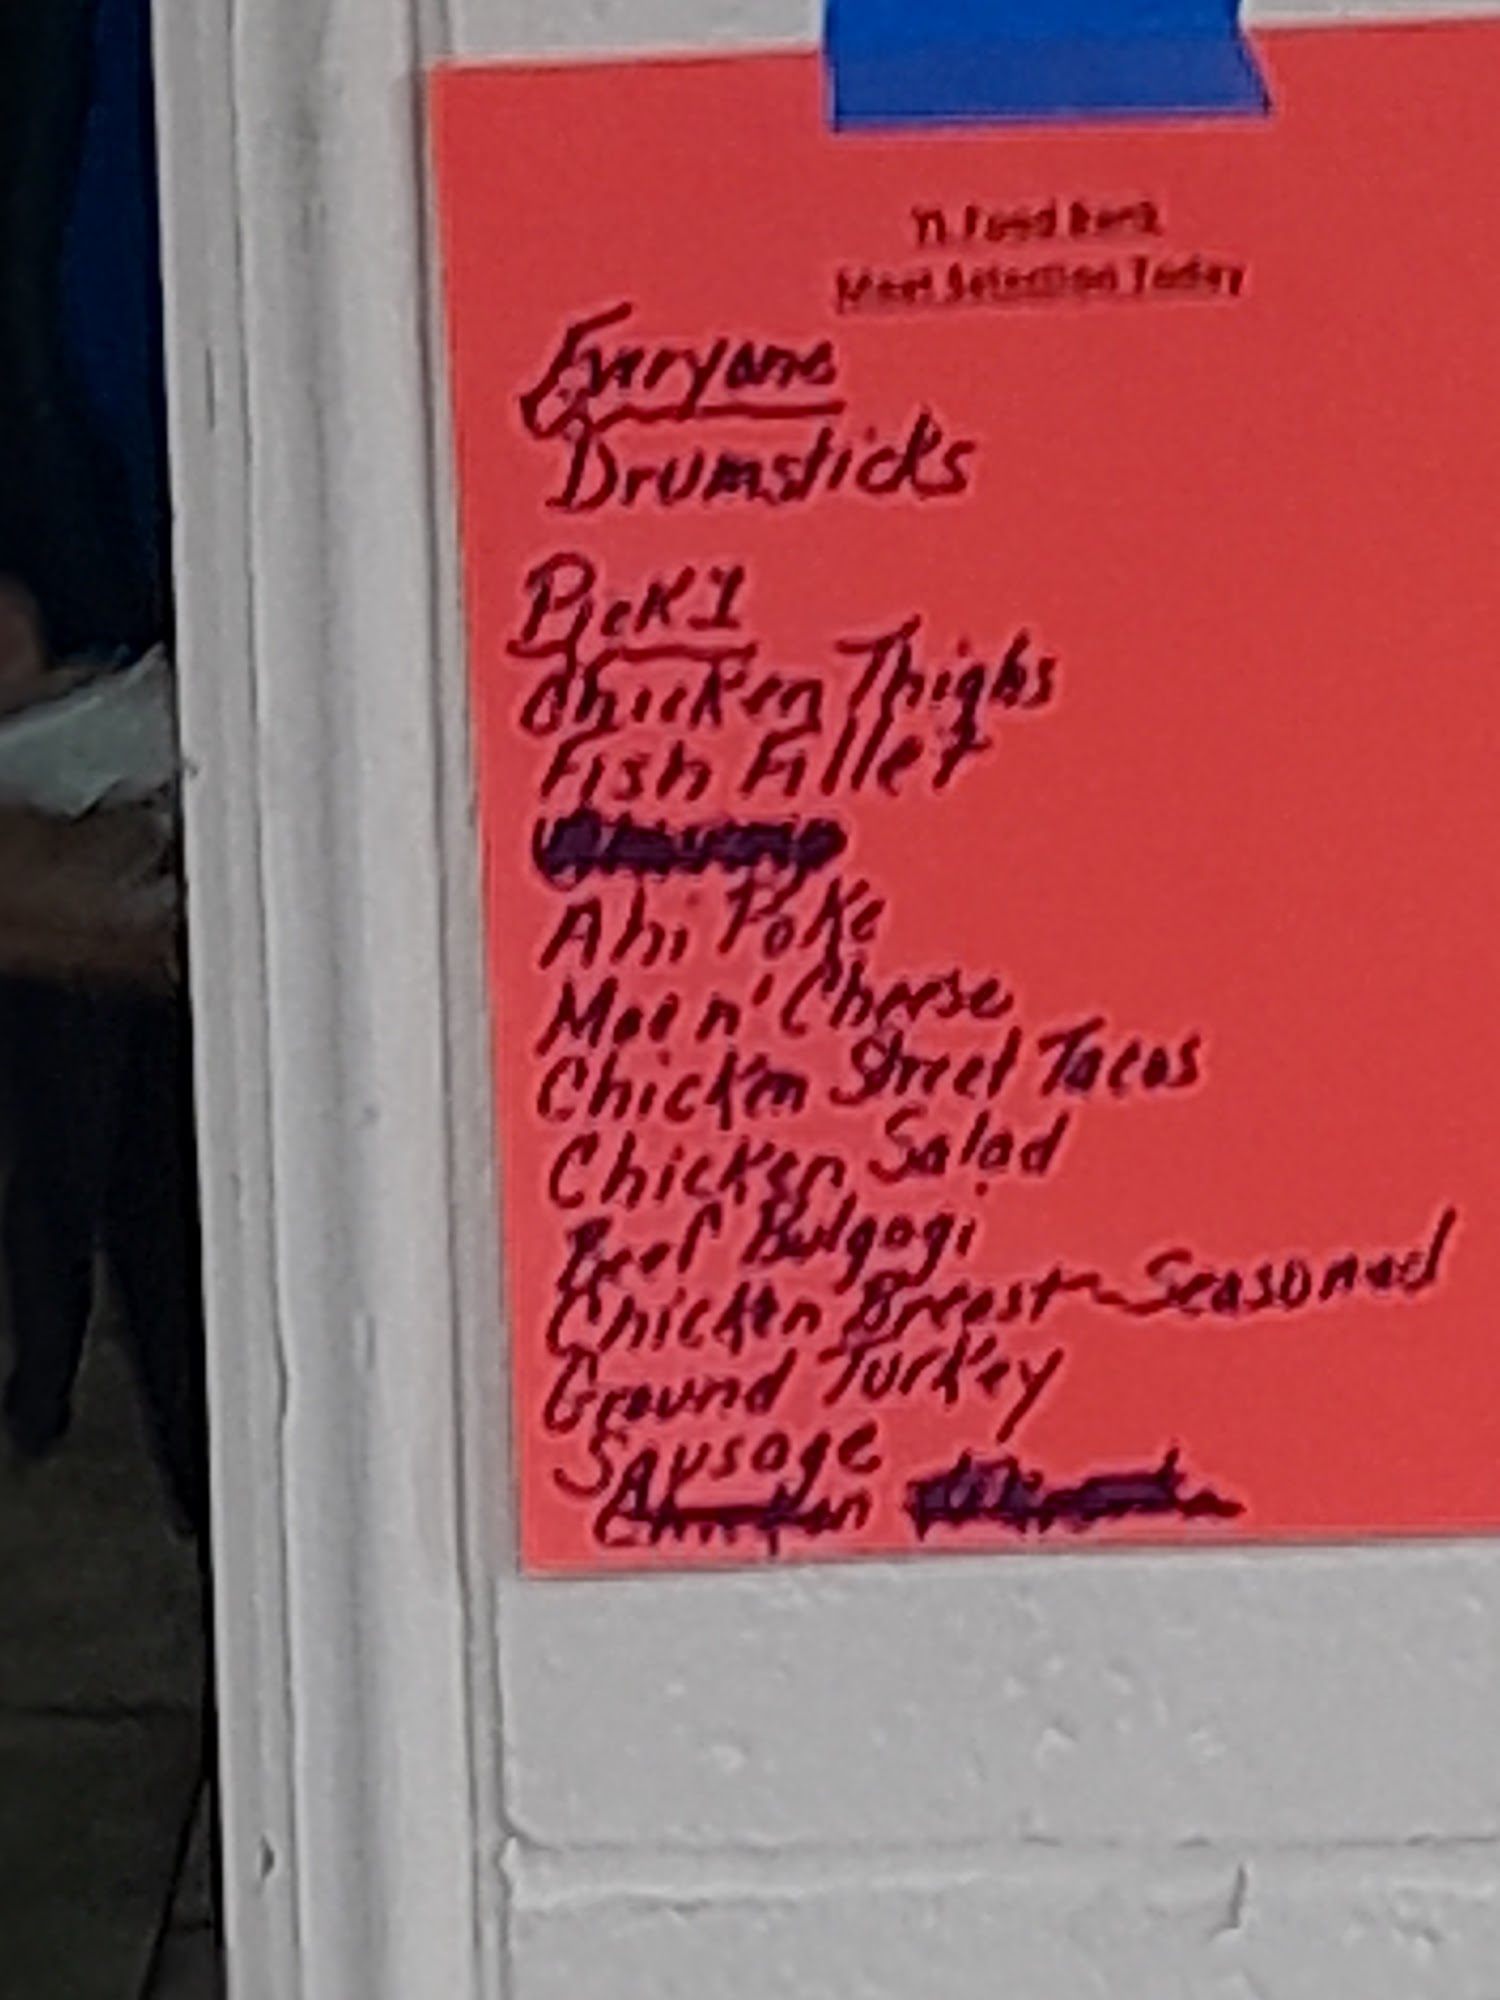 Food Bank
Meat Selection Today
Everyone
Drumsticks
Pick 1
Chicken Thighs
Fish Fillet
Ahi Poke
Mac n' Cheese
Chicken Street Tacos
Chicken Salad
Beef Bulgogi
Chicken Breast - Seasoned
Ground Turkey
Sausage
Chicken